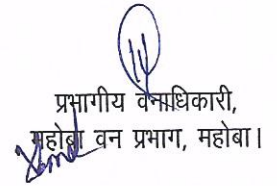 प्रभागीय वनाधिकारी,
महोबा वन प्रभाग, महोबा।